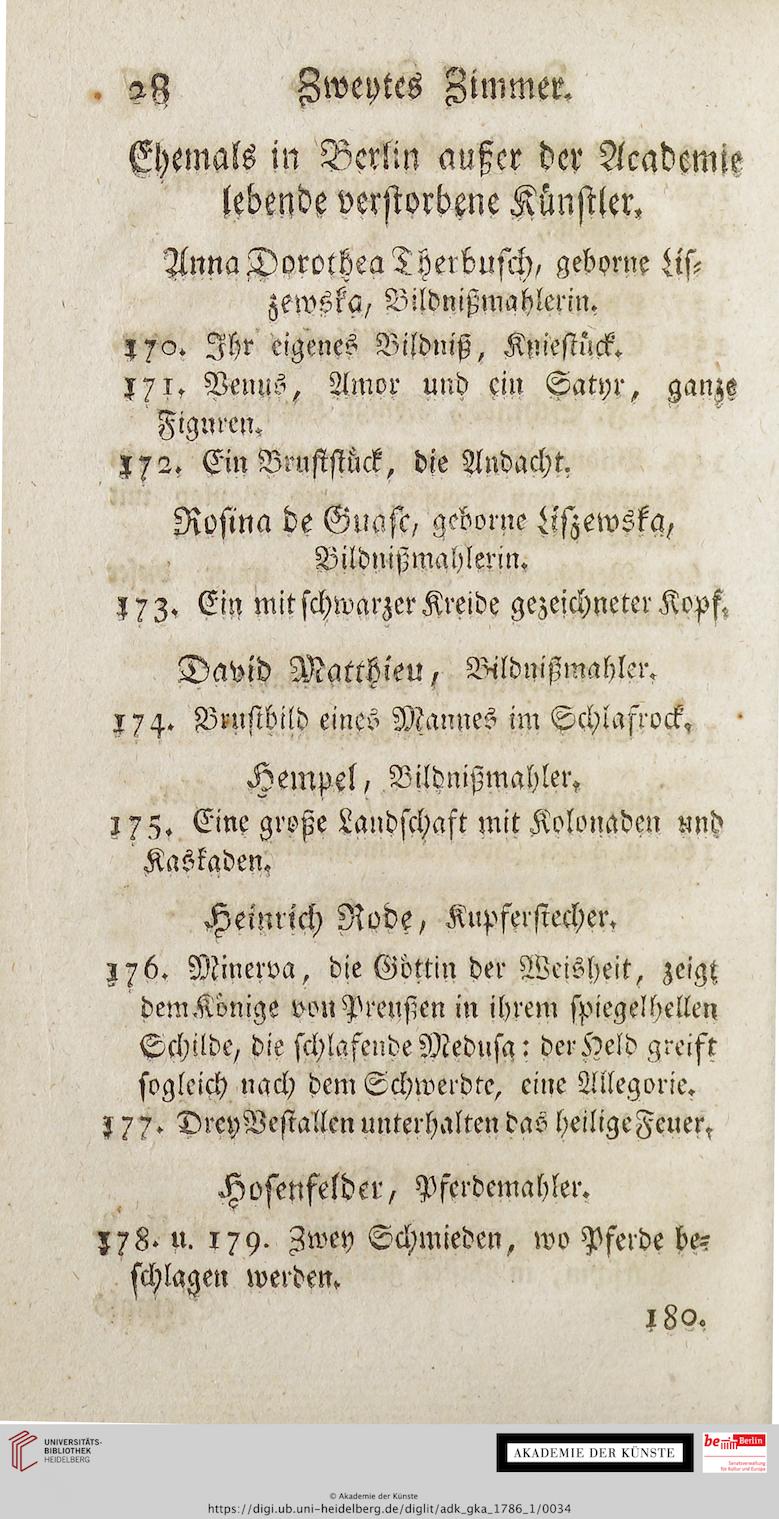 28 Zweytes Zimmer.
Ehemals in Berlin außer der Academie
lebende verstorbene Künstler.
Anna Dorothea Therbusch, geborne Lis-
zewska, Bildnißmahlerin.
170. Ihr eigenes Bildniß, Kniestück.
171. Venus, Amor und ein Satyr, ganze
Figuren.
172. Ein Bruststück, die Andacht.
Rosina de Guasc, geborne Liszewska,
Bildnißmahlerin.
173. Ein mit schwarzer Kreide gezeichneter Kopf.
David Matthieu, Bildnißmahler.
174. Brustbild eines Mannes im Schlafrock.
Hempel, Bildnißmahler.
175. Eine große Landschaft mit Kolonaden und
Kaskaden.
Heinrich Rode, Kupferstecher.
176. Minerva, die Göttin der Weisheit, zeigt
dem Könige von Preußen in ihrem spiegelhellen
Schilde, die schlafende Medusa: der Held greift
sogleich nach dem Schwerdte, eine Allegorie.
177. Drey Vestallen unterhalten das heilige Feuer.
Hosenfelder, Pferdemahler.
178. u. 179. Zwey Schmieden, wo Pferde be-
schlagen werden.
180.
UNIVERSITÄTS-
BIBLIOTHEK
HEIDELBERG
AKADEMIE DER KÜNSTE
be Berlin
Senatsverwaltung
für Kultur und Europa
© Akademie der Künste
https://digi.ub.uni-heidelberg.de/diglit/adk_gka_1786_1/0034